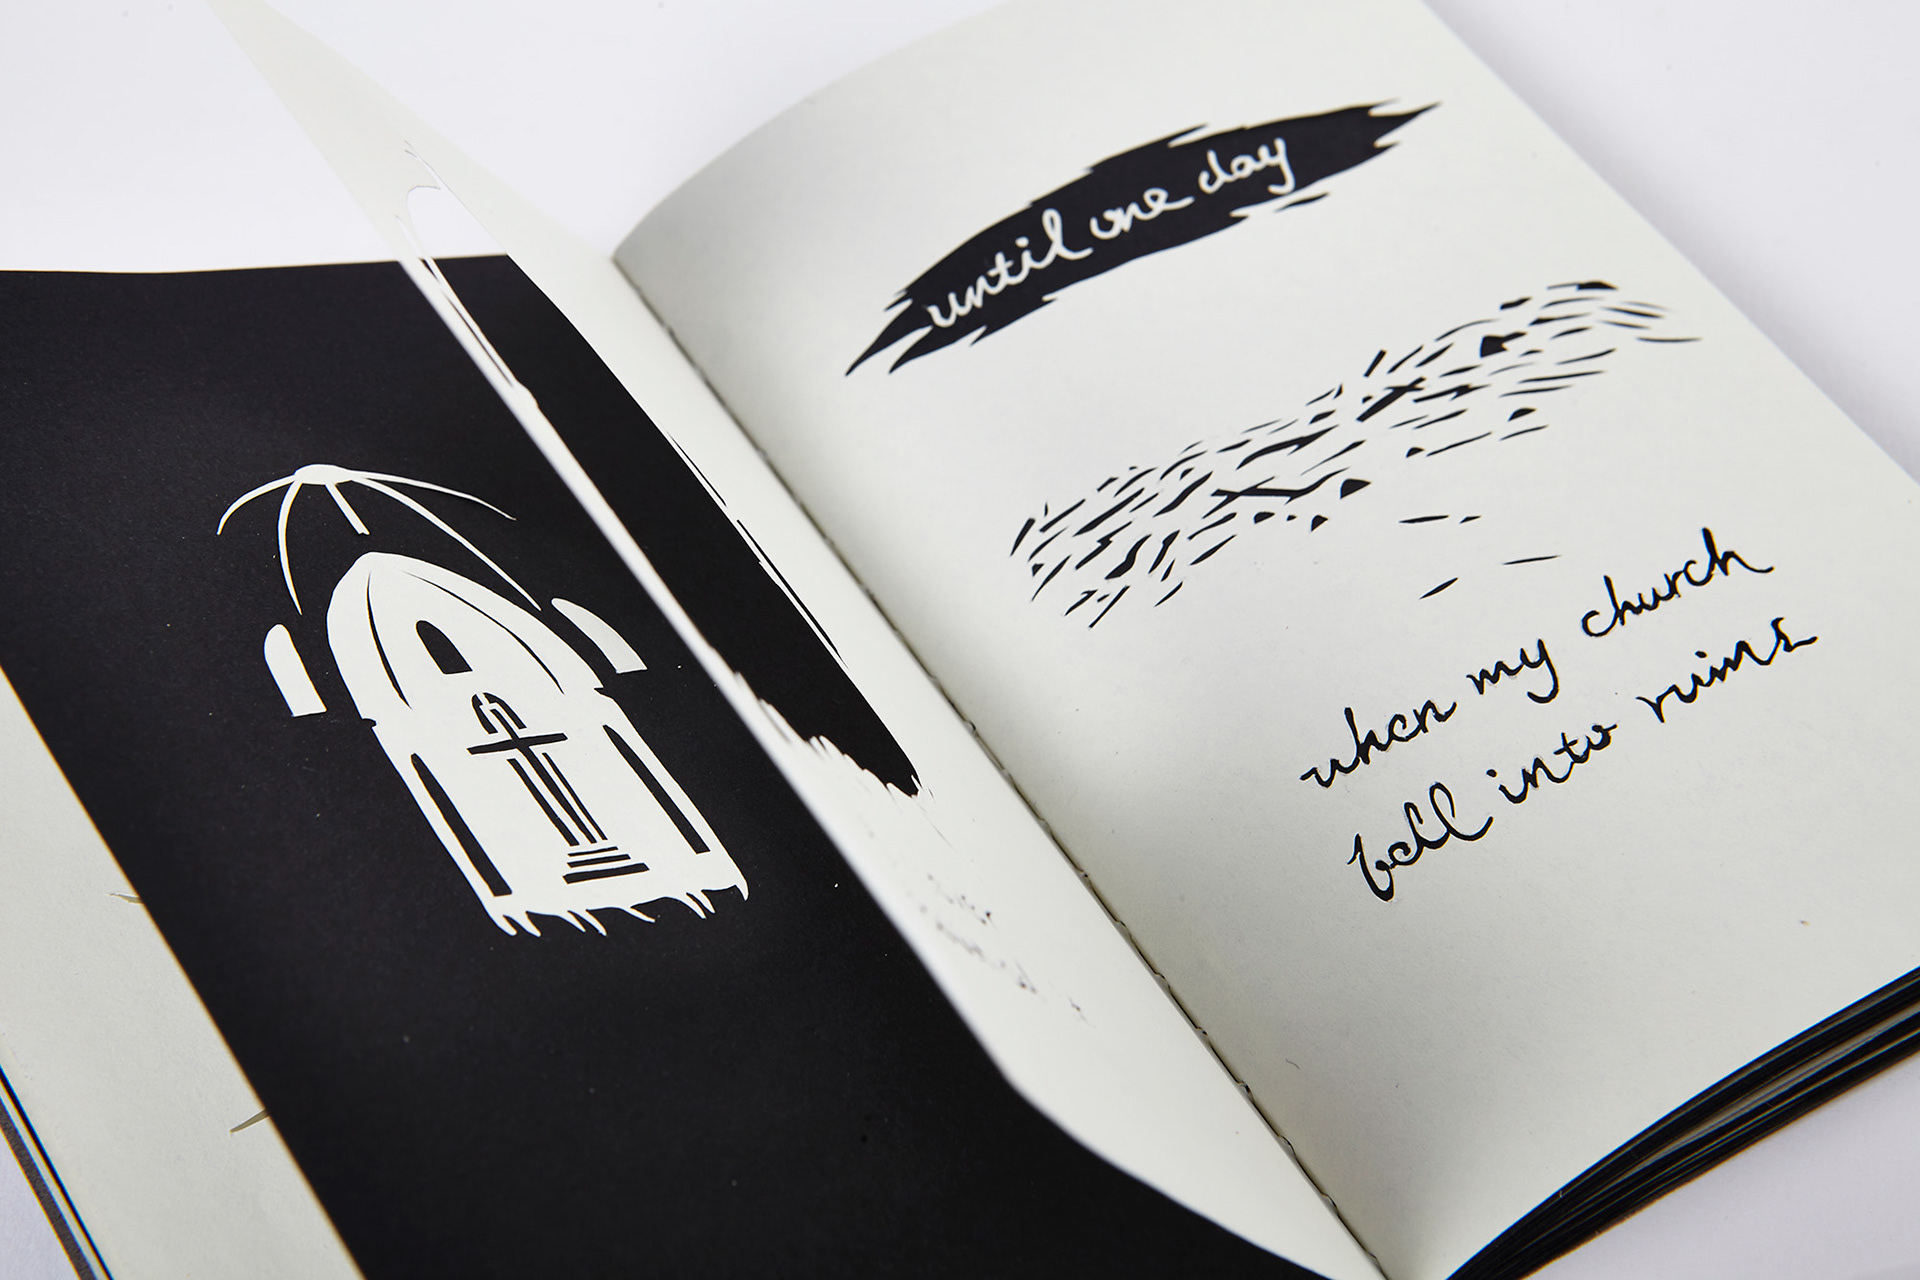 until one day
when my church
fell into ruins